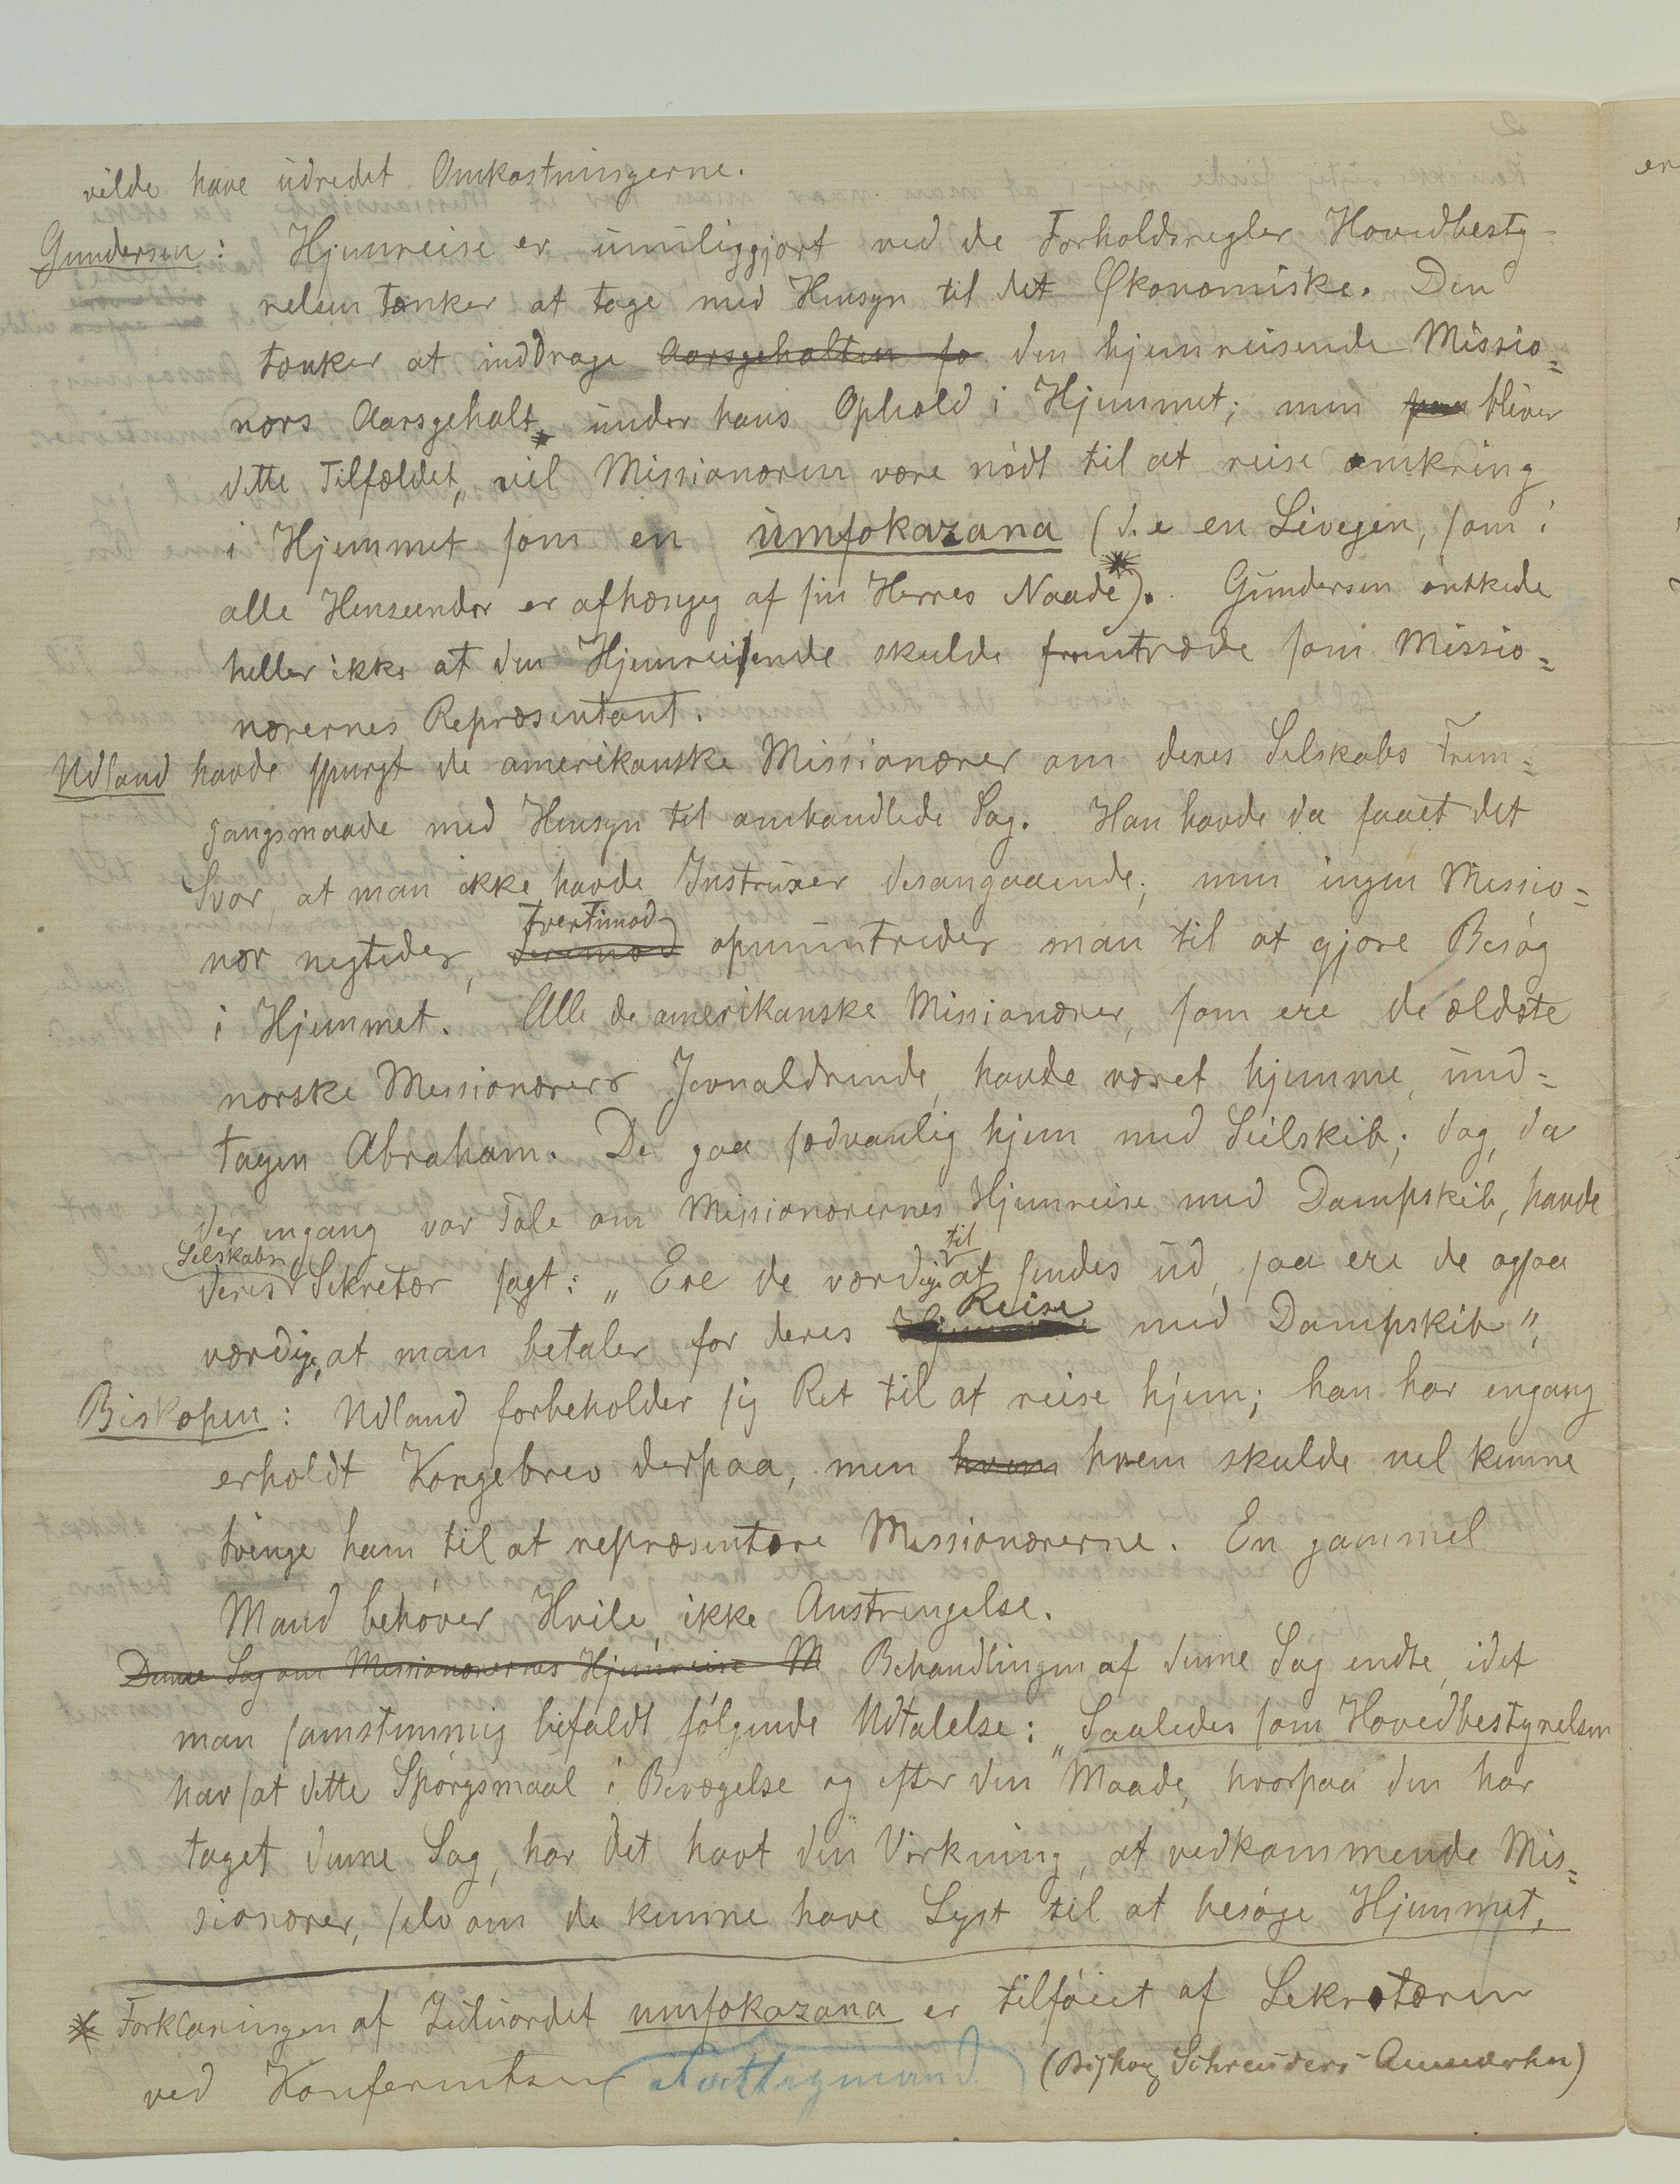 vilde have udredet Omkostningerne.
Gundersen: Hjemreise er umuliggjort ved de Forholdsregler Hovedbesty-
relsen tænker at tage med Hensyn til det Økonomiske. Den
tænker at inddrage Aarsgehalten fo den hjemreisende Missio=
nærs Aarsgehalt, under hans Ophold i Hjemmet; men paa bliver
dette Tilfældet, vil Missionæren være nødt til at reise omkring
i Hjemmet som en umfokazana (d. e en Livegen, som i
alle Henseender er afhængig af sin Herres Naade*). Gundersen ønskede
heller ikke at den Hjemreisende skulde fremtræde som Missio=
nærernes Repræsentant.
Udland havde spurgt de amerikanske Missionærer om deres Selskabs Frem=
gangsmaade med Hensyn til omhandlede Sag. Han havde da faaet det
Svar, at man ikke havde Instruxer desangaaende; men ingen Missio=
nær negtedes, derimod tvertimod opmuntredes man til at gjøre Besøg
i Hjemmet. Alle de amerikanske Missionærer, som ere de ældste
norske Missionærers Jevnaldrende, havde været hjemme, und=
tagen Abraham. De gaa sædvanlig hjem med Seilskib; dog, da
der engang var Tale om Missionærernes Hjemreise med Dampskib, havde
deres Selskabs Sekretær sagt: „Ere de værdige til at sendes ud, saa ere de ogsaa
værdige, at man betaler for deres Reise med Dampskib".
Biskopen: Udland forbeholder sig Ret til at reise hjem; han har engang
erholdt Kongebrev derpaa, men hvem hvem skulde vel kunne
tvinge ham til at repræsentere Missionærerne. En gammel
Mand behøver Hvile, ikke Anstrengelse.
Denne Sag om Missionærernes Hjemreise M Behandlingen af denne Sag endte, idet
man samstemmig bifaldt følgende Udtalelse: „Saaledes som Hovedbestyrelsen
har sat dette Spørgsmaal i Bevægelse og efter den Maade, hvorpaa den har
taget denne Sag, har det havt den Virkning, at vedkommende Mis=
sionærer, selv om de kunne have Lyst til at besøge Hjemmet,
* Forklaringen af Zuluordet umfokazana er tilføiet af Sekretæren
ved Konferentsen (Fattigmand) (Biskop Schreuders Anmærkn)